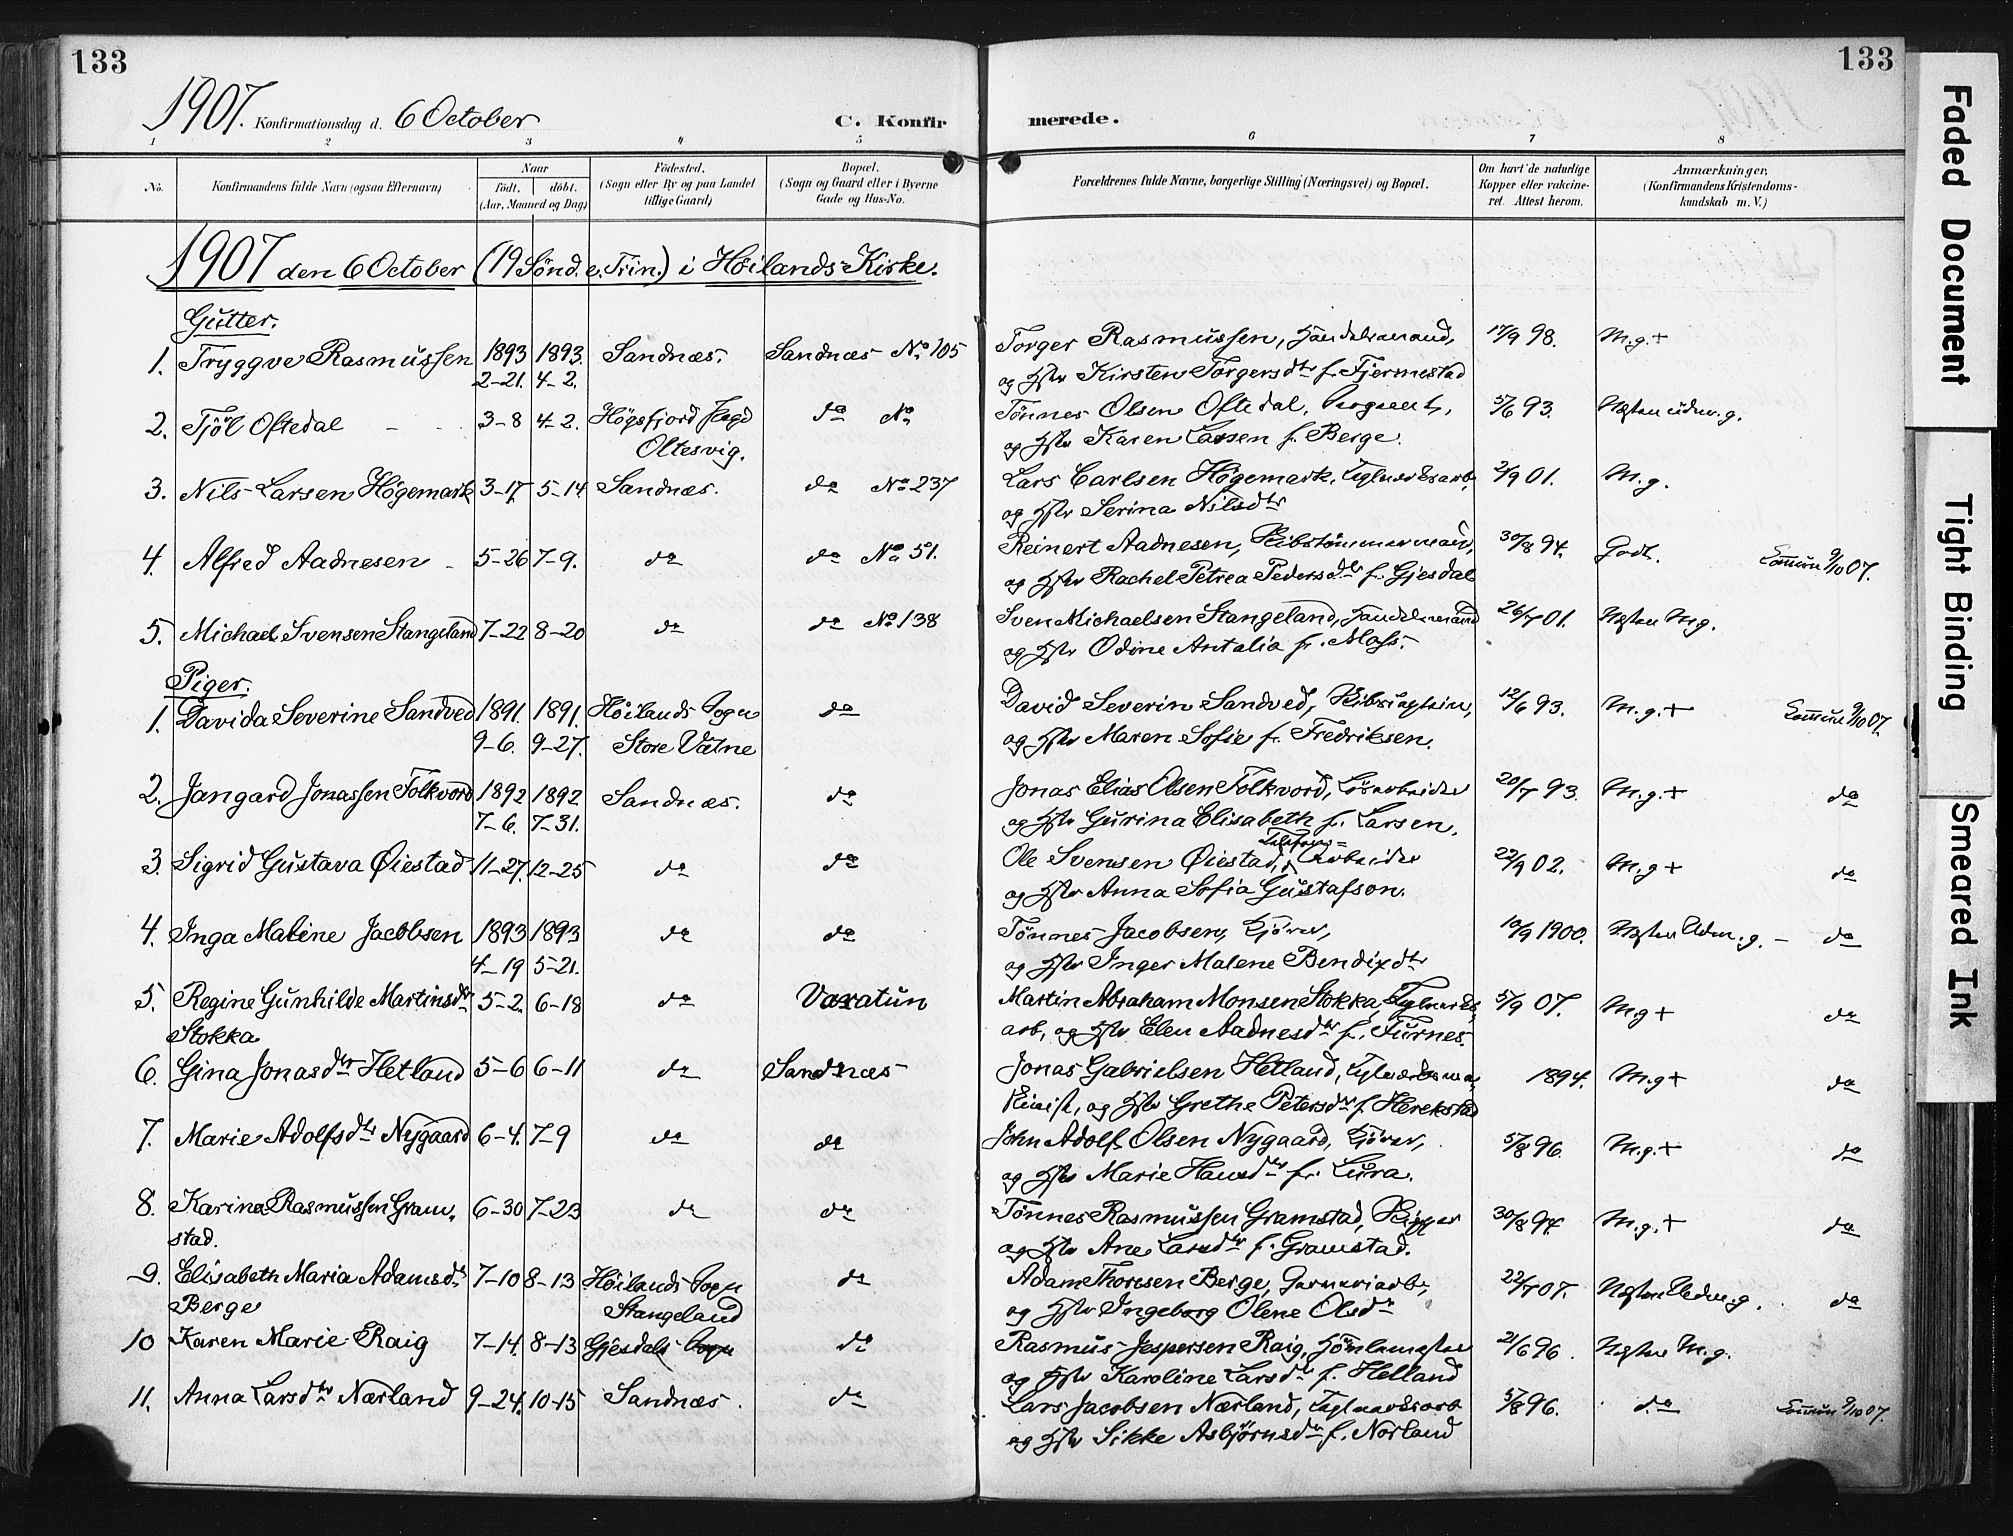 133
133
1907. Konfirmationsdag d. 6 October
C. Konfir merede.
1 2 3 4 5 6 7 8
No. Konfirmandens fulde Navn (ogsaa Efternavn) Naar født. døbt. (Aar, Maaned og Dag) Fødested. (Sogn eller By og paa Landet tillige Gaard) Bopæl. (Sogn og Gaard eller i Byerne Gade og Hus-No. Forældrenes fulde Navne, borgerlige Stilling (Næringsvei) og Bopæl. Om havt de naturlige Kopper eller vakcineret. Attest herom. Anmærkninger, (Konfirmandens Kristendomskundskab m. V.)
1907 den 6 October (19 Sønd. e. Trin.) i Høilands Kirke.
Gutter.
1. Tryggve Rasmussen 1893 1893. Sandnæs. Sandnæs No 105 Torger Rasmussen, Handelsmand, 17/9 98. M.g.+
2-21. 4-2. og Hstr Kirsten Torgersdtr f. Fjermestad
2. Tjøl Oftedal 3-8 4-2. Høgsfjord Sogn do No Tønnes Olsen Oftedal, 5/6 93. Næsten udm. g.
Oltesvig. og Hstr Karen Larsen f. Berge.
3. Nils Larsen Høgemark 3-17. 5-14 Sandnæs. do No 237 Lars Carlsen Høgemark, Teglverksarb. 2/9 01. M.g.
og Hstr Serina Nilsdtr
4. Alfred Aadnesen 5-26 7-9. do do No 51. Reinert Aadnesen, Skibstømmermand, 30/8 94. Godt. Commun 9/10 07.
og Hstr Rachel Petrea Pedersdtr f. Gjesdal
5. Michael Svensen Stangeland 7-22 8-20 do do No 138 Sven Michaelsen Stangeland, Handelsmand 26/7 01. Næsten M.g.
og Hstr Odine Antalia f. Moss.
Piger.
1. Davida Severine Sandved 1891. 1891. Høilands Sogn do David Severin Sandved, 12/6 93. M.g.+ Commun 9/10 07.
9-6. 9-27. Store Vatne og Hstr Maren Sofie f. Fredriksen.
2. Jangard Jonassen Folkvord 1892 1892 Sandnæs. do Jonas Elias Olsen Folkvord, Løsarbeider 20/7 93. M.g.+ do
7-6. 7-31. og Hstr Gurina Elisabeth f. Larsen.
Telefon=
3. Sigrid Gustava Øiestad 11-27. 12-25 do do Ole Svensen Øiestad, arbeider 22/9 02. M.g+ do
og Hstr Anna Sofia Gustafson.
4. Inga Maline Jacobsen 1893 1893 do do Tønnes Jacobsen, Kjører, 10/9 1900. Næsten Udm. g. - do
4-19 5-21. og Hstr Inger Malene Bendixdtr
5. Regine Gunhilde Martinsdtr 5-2. 6-18 do Varatun Martin Abraham Monsen Stokka, Teglverks 5/9 07. M.g+ do
Stokka arb, og Hstr Elen Aadnesdtr f. Furnes.
6. Gina Jonasdtr Hetland 5-6 6-11 do Sandnæs Jonas Gabrielsen Hetland, Teglværksma- 1894. M.g+ do
skinist, og Hstr Grethe Petersdtr f. Herekstad
7. Marie Adolfsdtr Nygaard 6-4. 7-9 do do John Adolf Olsen Nygaard, Kjører, 5/8 96. M.g.+ do
og Hstr Marie Hansdtr f. Lura.
8. Karina Rasmussen Gram- 6-30 7-23 do do Tønnes Rasmussen Gramstad, Skipper 30/8 94. M.g.+ do
stad. og Hstr Ane Larsdtr f. Gramstad.
9. Elisabeth Maria Adamsdtr 7-10 8-13 Høilands Sogn do Adam Thorsen Berge, Garveriarb, 22/7 07. Næsten Udm. g. do
Berge Stangeland og Hstr Ingeborg Olene Olsdtr
10 Karen Marie Raig 7-14. 8-13 Gjesdals Sogn do Rasmus Jespersen Raig, 21/6 96. Næsten M.g.
og Hstr Karoline Larsdtr f. Helland
11. Anna Larsdtr Nærland 9-24. 10-15 Sandnæs. do Lars Jacobsen Nærland, Teglverksarb 5/8 96. do Commun 9/10 07.
og Hstr Sikke Asbjørnsdtr f. Norland
Faded Document
Tight Binding
Smeared Ink